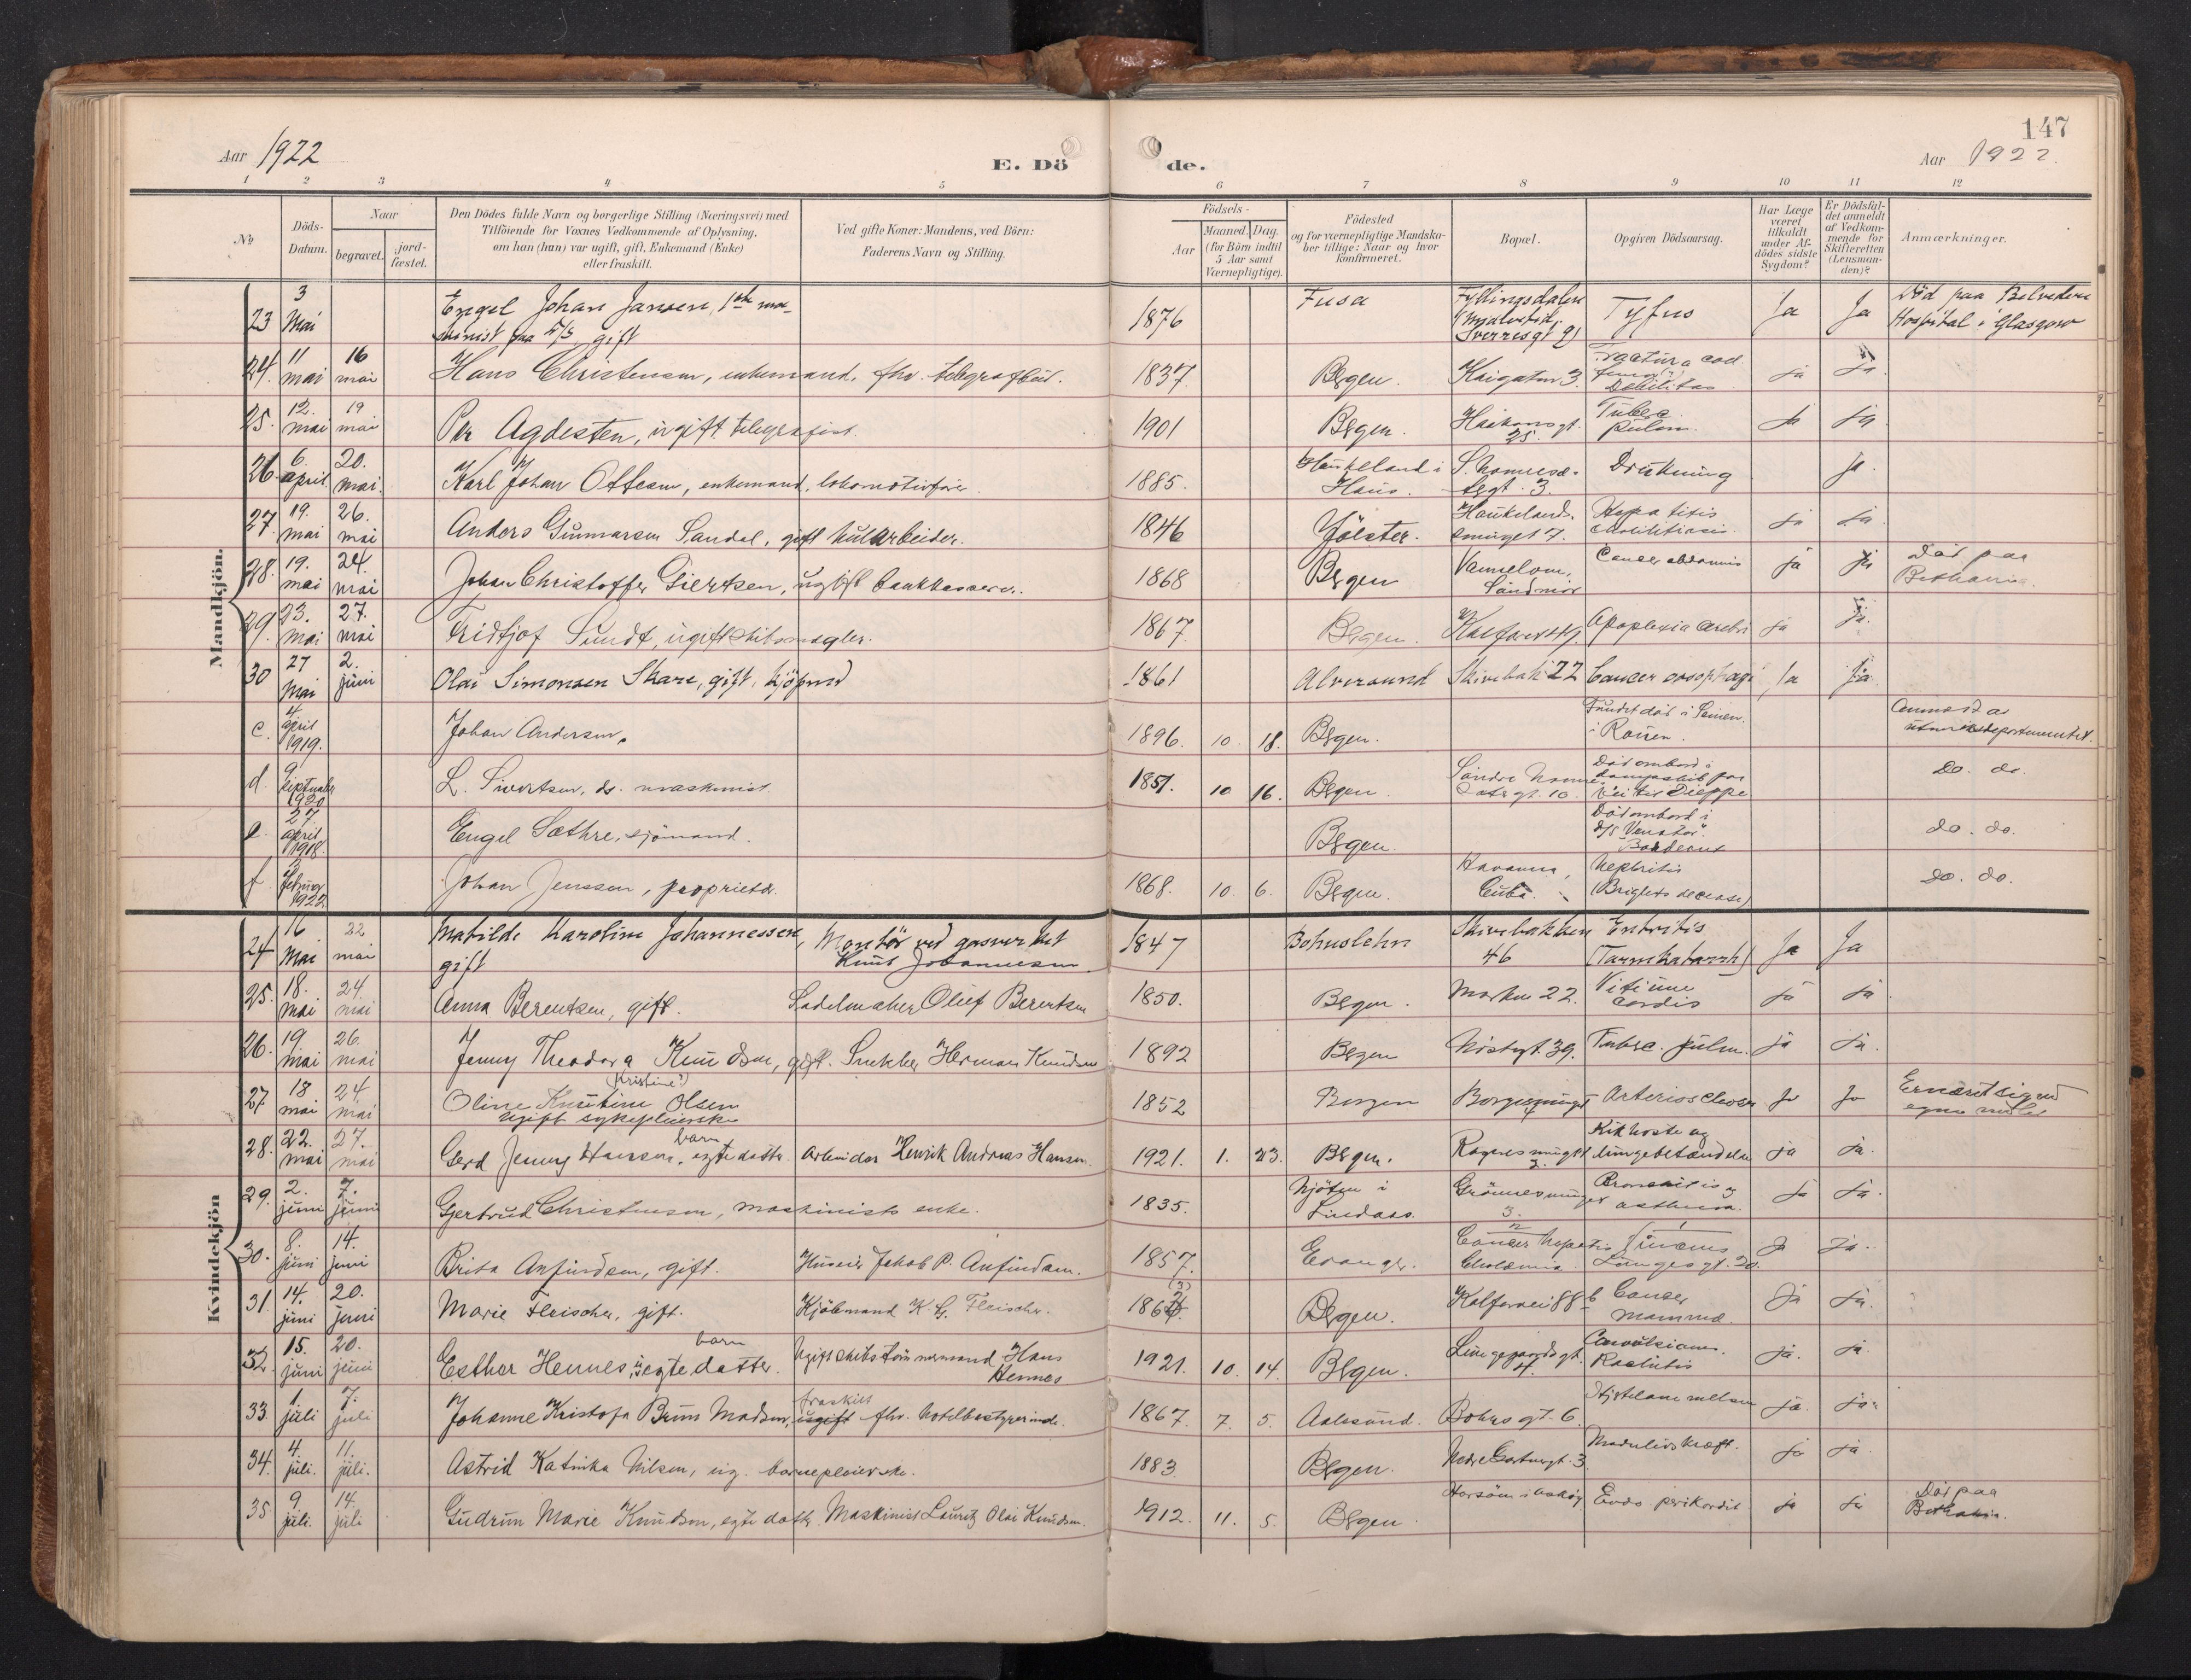 147
Aar 1922
E. Dö
de.
Aar 1922.
1 2 3 4 5 6 7 8 9 10 11 12
№
Döds-
Datum.
Naar
begravet.
jord-
fæstet.
Den Dödes fulde Navn og borgerlige Stilling (Næringsvei) med
Tilföiende for Voxnes Vedkommende af Oplysning,
om han (hun) var ugift, gift, Enkemand (Enke)
eller fraskilt.
Ved gifte Koner: Mandens, ved Börn:
Faderens Navn og Stilling.
Födsels-
Aar
Maaned. Dag.
(for Börn indtil
5 Aar samt
Værnepligtige).
Födested
og for værnepligtige Mandska-
ber tillige: Naar og hvor
konfirmeret.
Bopæl.
Opgiven Dödsaarsag.
Har Læge
været
tilkaldt
under Af-
dödes sidste
Sygdom?
Er Dödsfal-
det anmeldt
af Vedkom-
mende for
Skifteretten
(Lensman-
den)?
Anmærkninger.
Mandkjön.
23 3 Mai Engel Johan Jansen, 1ste ma-
skinist paa S/S, gift 1876 Fusa Fyllingsdalen
Sverresgt 9) Tyfus Ja Ja Död paa Belvedere
Hospital i Glasgow
24. 11 mai 16 mai Hans Christensen, enkemand, fhv. telegrafbud. 1837. Bergen. Kaigaten 3. Fractura
Debilitas ja ja
25. 12. mai 19 mai Per Agdesten, ugift telegrafist. 1901 Bergen. Haakonsgt.
25. Tuberc.
pulm. ja ja
26. 6. april 20. mai. Karl Johan Ottesen, enkemand, lokomotivfører 1885. Haukeland i
Haus. 3. Drukning ja.
27. 19. mai 26. mai Anders Gunnarsen Sandal, gift kularbeider. 1846 Jölster. Haukelands-
smuget 7. Hepatitis
ja ja
28. 19. mai 24. mai Johan Christoffer Giertsen, ugift bankkasserer. 1868 Bergen Söndmör Cancer abdominis ja ja Död paa
Bethania.
29. 23. mai 27. mai Fridtjof Sundt, ugift skibsmægler. 1867. Bergen. Apoplexia cerebri ja ja.
30 27 Mai 2. juni Olai Simonsen Skare, gift, kjöpmd 1861 Alversund Skivebak 22 Cancer oesophagi Ja Ja
c. 4. april 1919. Johan Andersen. 1896. 10. 18. Bergen. Fundet död i Seinen.
i Rouen. Anmeldt av
utenriksdepartementet.
d. 9 september 1920 L. Sivertsen, ds. maskinist. 1851. 10 16. Bergen. Söndre
gt. 10. Död ombord i
dampskib paa
vei til Dieppe Do. do.
e. 27. april 1918. Engel Sæthre, sjömand. Bergen. Död ombord i
d/s "Venator".
Bordeaux do. do.
f. februar 1922 Johan Jenssen, proprietær. 1868. 10. 6. Bergen. Havanna,
Cuba. Nephritis
(Brights decease) do. do.
Kvindekjön
24 16 Mai 22 mai Mathilde Karoline Johannessen,
gift Montör ved gasverket
Knut Johannessen 1847 Bohuslehn Skivebakken
46 Entritis
(Tarmkatarrh) Ja Ja
25. 18. mai 24. mai Anna Berentsen, gift. Sadelmaker Oluf Berentsen 1850. Bergen. Marken 22. Vitium
cordis ja ja
26. 19. mai 26. mai Jenny Theodora Knudsen, gift. Snekker Herman Knudsen 1892 Bergen Nöstegt. 39. Tuberc. pulm. ja ja.
27 18 mai 24. mai (Kristine?)
Oline Kristine Olsen
ugift sykepleierske 1852 Bergen Arteriosclerose Ja Ja Ernæret sig ved
egne midler
28. 22. mai 27. mai barn
Gerd Jenny Hansen, egte datter. Arbeider Henrik Andreas Hansen. 1921. 1. 23. Bergen. 3. Kikhoste og
lungebetændelse ja ja.
29. 2. juni 7. juni Gertrud Christensen, maskinists enke. 1835. Lindaas. Grönnesmuget
3. Bronchitis og
asthma. ja ja.
30. 8. juni 14. juni Brita Anfindsen, gift. Huseier Jakob P. Anfindsen. 1857. Evanger. Cancer hepatis
Cholæmia. Lungegt. 20. Ja ja.
31. 14. juni 20. juni Marie Fleischer, gift. Kjöbmand K. G. Fleischer. (3)
186 Bergen. Kalfarvei 88 b Cancer
mammæ. Ja ja.
32. 15. juni 20. juni barn
Esther Hennes, uegte datter. Ugift skibstömmermand Hans
Hennes 1921. 10. 14. Bergen. Lungegaardsgt.
4. Convulsiones.
Rachitis ja. ja.
33. 1 juli 7. juli Johanne Kristofa Brun Madsen, fraskilt
ugift fhv. hotelbestyrerinde. 1867. 7. 5. Aalesund. Bohrs gt. 6. ja. ja.
34. 4. juli. 11. juli. Astrid Katinka Nilsen, ug. barnepleierske. 1883 Bergen. 3. ja ja.
35. 9. juli. 14. juli Gudrun Marie Knudsen, egte datter. Maskinist Lauritz Olai Knudsen. 1912. 11. 5. Bergen. Endo perikardit ja ja Död paa
Bethania.